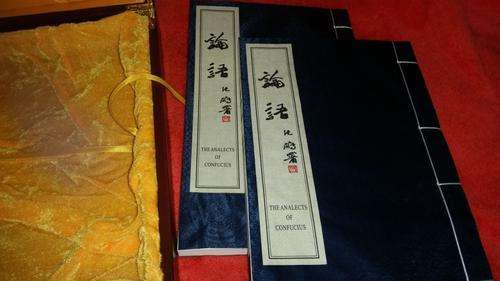 論語
沈鵬署
THE ANALECTS
OF
CONFUCIUS
論語
沈鵬署
THE ANALECTS
OF
CONFUCIUS